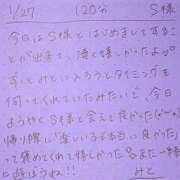 1/27 120分 S様
今日はS様とはじめましてすること
が出来て、凄く嬉しかったよ♡
ずっとみとに入ろうとタイミングを
伺ってくれていたみたいで、今日
ようやくS様と会えて良かった(*´-`*)
帰り際に「楽しい子で本当に良かった」
って褒めてくれて嬉しかった♡また一緒
に遊ぼうね!! みと